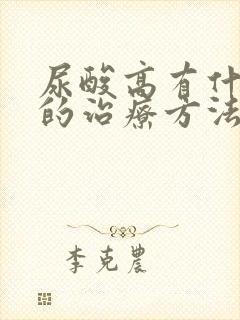 尿酸高有什
的治疗方法
李克農